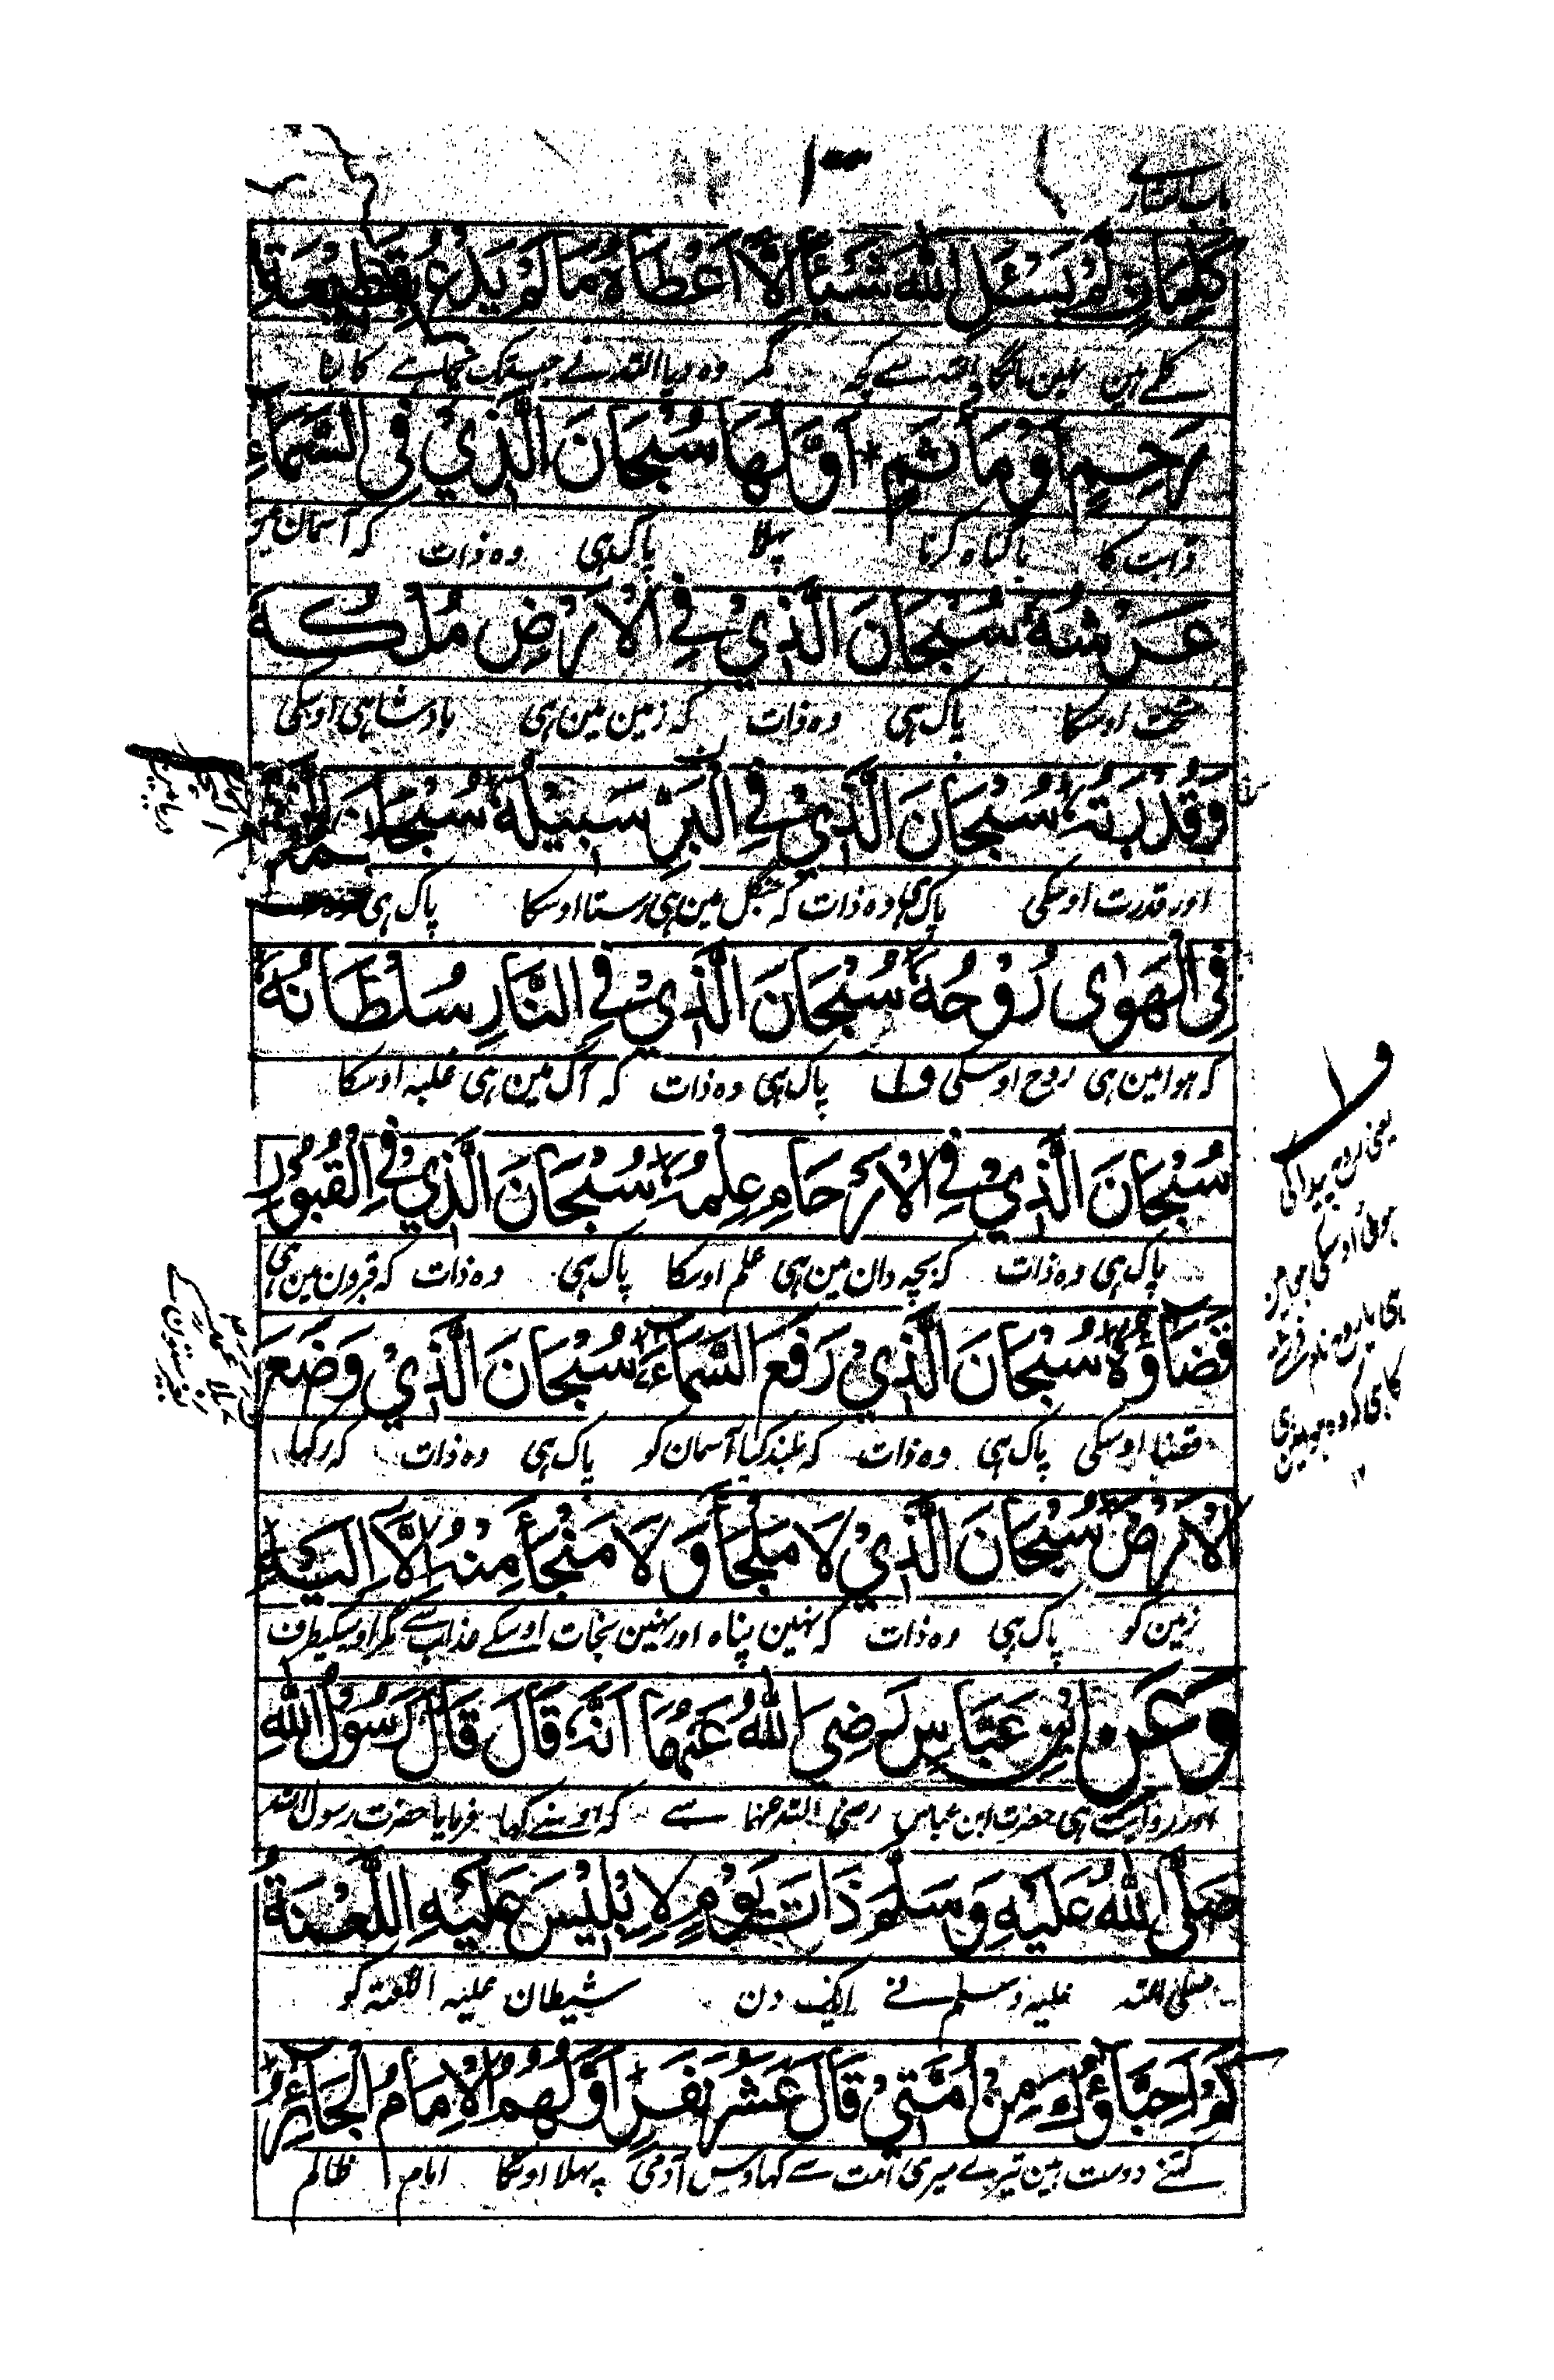 ۱۰۰
كَلِمَاتٍ لَمْ يَسْئَلِ اللهَ شَيْئًا اِلَّا اَعْطَاهُ مَا لَمْ يَدْعُ بِقَطِيْعَةِ
کلمے ہین نہین مانگا اللہ سے کچھ مگر وہ دیا اللہ نے جب تک کاٹنا
رَحِمٍ اَوْ مَأْثَمٍ * اَوَّلُهَا سُبْحَانَ الَّذِيْ فِي السَّمَاءِ
یا گناہ کرنا پہلا پاک ہی وہ ذات کہ آسمان مین
عَرْشُهُ سُبْحَانَ الَّذِيْ فِي الْاَرْضِ مُلْكُهُ
تخت اوسکا پاک ہی وہ ذات کہ زمین مین ہی بادشاہی اوسکی
وَقُدْرَتُهُ سُبْحَانَ الَّذِيْ فِي الْبَرِّ سَبِيْلُهُ سُبْحَانَ الَّذِيْ
اور قدرت اوسکی پاک ہی وہ ذات کہ جنگل مین ہی رستا اوسکا پاک ہی
فِي الْهَوٰى رُوْحُهُ سُبْحَانَ الَّذِيْ فِي النَّارِ سُلْطَانُهُ
کہ ہوا مین ہی روح اوسکی ف۱ پاک ہی وہ ذات کہ آگ مین ہی غلبہ اوسکا
سُبْحَانَ الَّذِيْ فِي الْاَرْحَامِ عِلْمُهُ سُبْحَانَ الَّذِيْ فِي الْقُبُوْرِ
پاک ہی وہ ذات کہ بچہ دان مین ہی علم اوسکا پاک ہی وہ ذات کہ قبرون مین ہی
قَضَاؤُهُ سُبْحَانَ الَّذِيْ رَفَعَ السَّمَاءَ سُبْحَانَ الَّذِيْ وَضَعَ
قضا اوسکی پاک ہی وہ ذات کہ بلند کیا آسمان کو پاک ہی وہ ذات کہ رکھا
الْاَرْضَ سُبْحَانَ الَّذِيْ لَا مَلْجَأَ وَلَا مَنْجَأَ مِنْهُ اِلَّا اِلَيْهِ
زمین کو پاک ہی وہ ذات کہ نہین پناہ اور نہین نجات اوسکے عذاب سے مگر اوسیکیطرف
وَعَنِ ابْنِ عَبَّاسٍ رَضِيَ اللهُ عَنْهُمَا اَنَّهُ قَالَ قَالَ رَسُوْلُ اللهِ
اور روایت ہی حضرت ابن عباس رضی اللہ عنہما سے کہ اونے کہا فرمایا حضرت رسول اللہ
صَلَّى اللهُ عَلَيْهِ وَسَلَّمَ ذَاتَ يَوْمٍ لِاِبْلِيْسَ عَلَيْهِ اللَّعْنَةُ
صلی اللہ علیہ وسلم نے ایک دن شیطان علیہ اللعنۃ کو
كَمْ اَحِبَّاؤُكَ مِنْ اُمَّتِيْ قَالَ عَشْرُ نَفَرٍ اَوَّلُهُمُ الْاِمَامُ الْجَائِرُ
کتنے دوست ہین تیرے میری امت سے کہا دس آدمی پہلا اونکا امام ظالم
ف۱
یعنی روح پیدا کی
ہوئی اوسکی